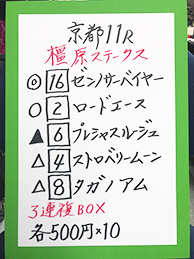 京都11R
橿原ステークス
◎ 16 ゼンノサーバイヤー
○ 2 ロードエース
▲ 6 プレシャスルージュ
△ 4 ストロベリームーン
△ 8 タガノアム
3連複BOX
各500円×10